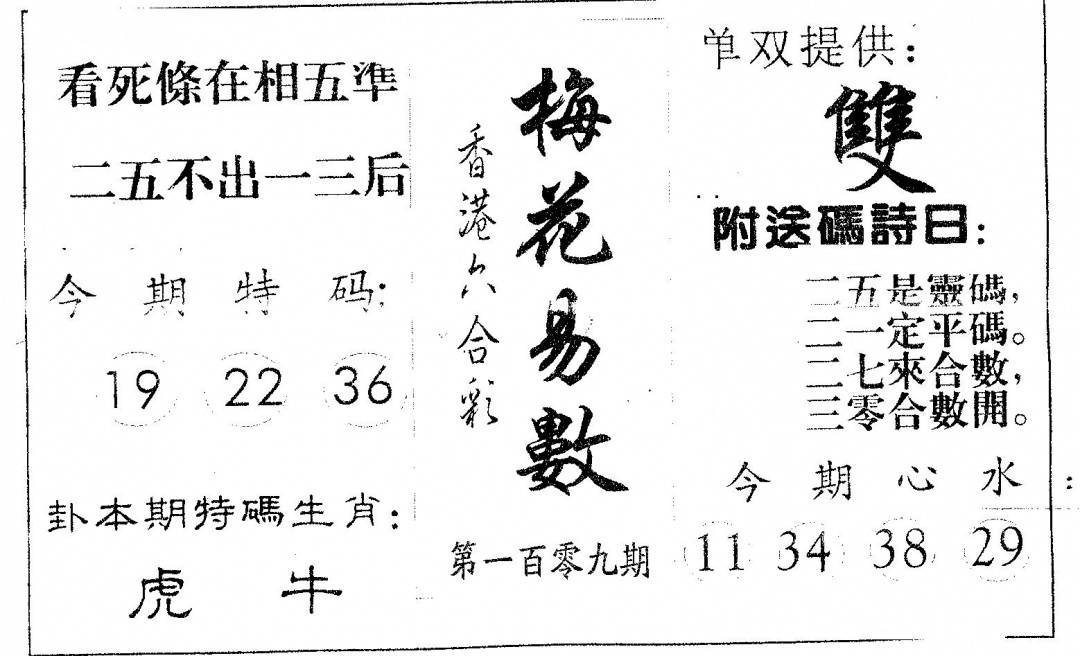 看死條在相五準
二五不出一三后
今期特码:
19 22 36
卦本期特碼生肖:
虎 牛
香港六合彩
梅花易數
第一百零九期
单双提供:
雙
附送碼詩曰:
二五是靈碼,
二一定平碼。
三七來合數,
三零合數開。
今期心水:
11 34 38 29